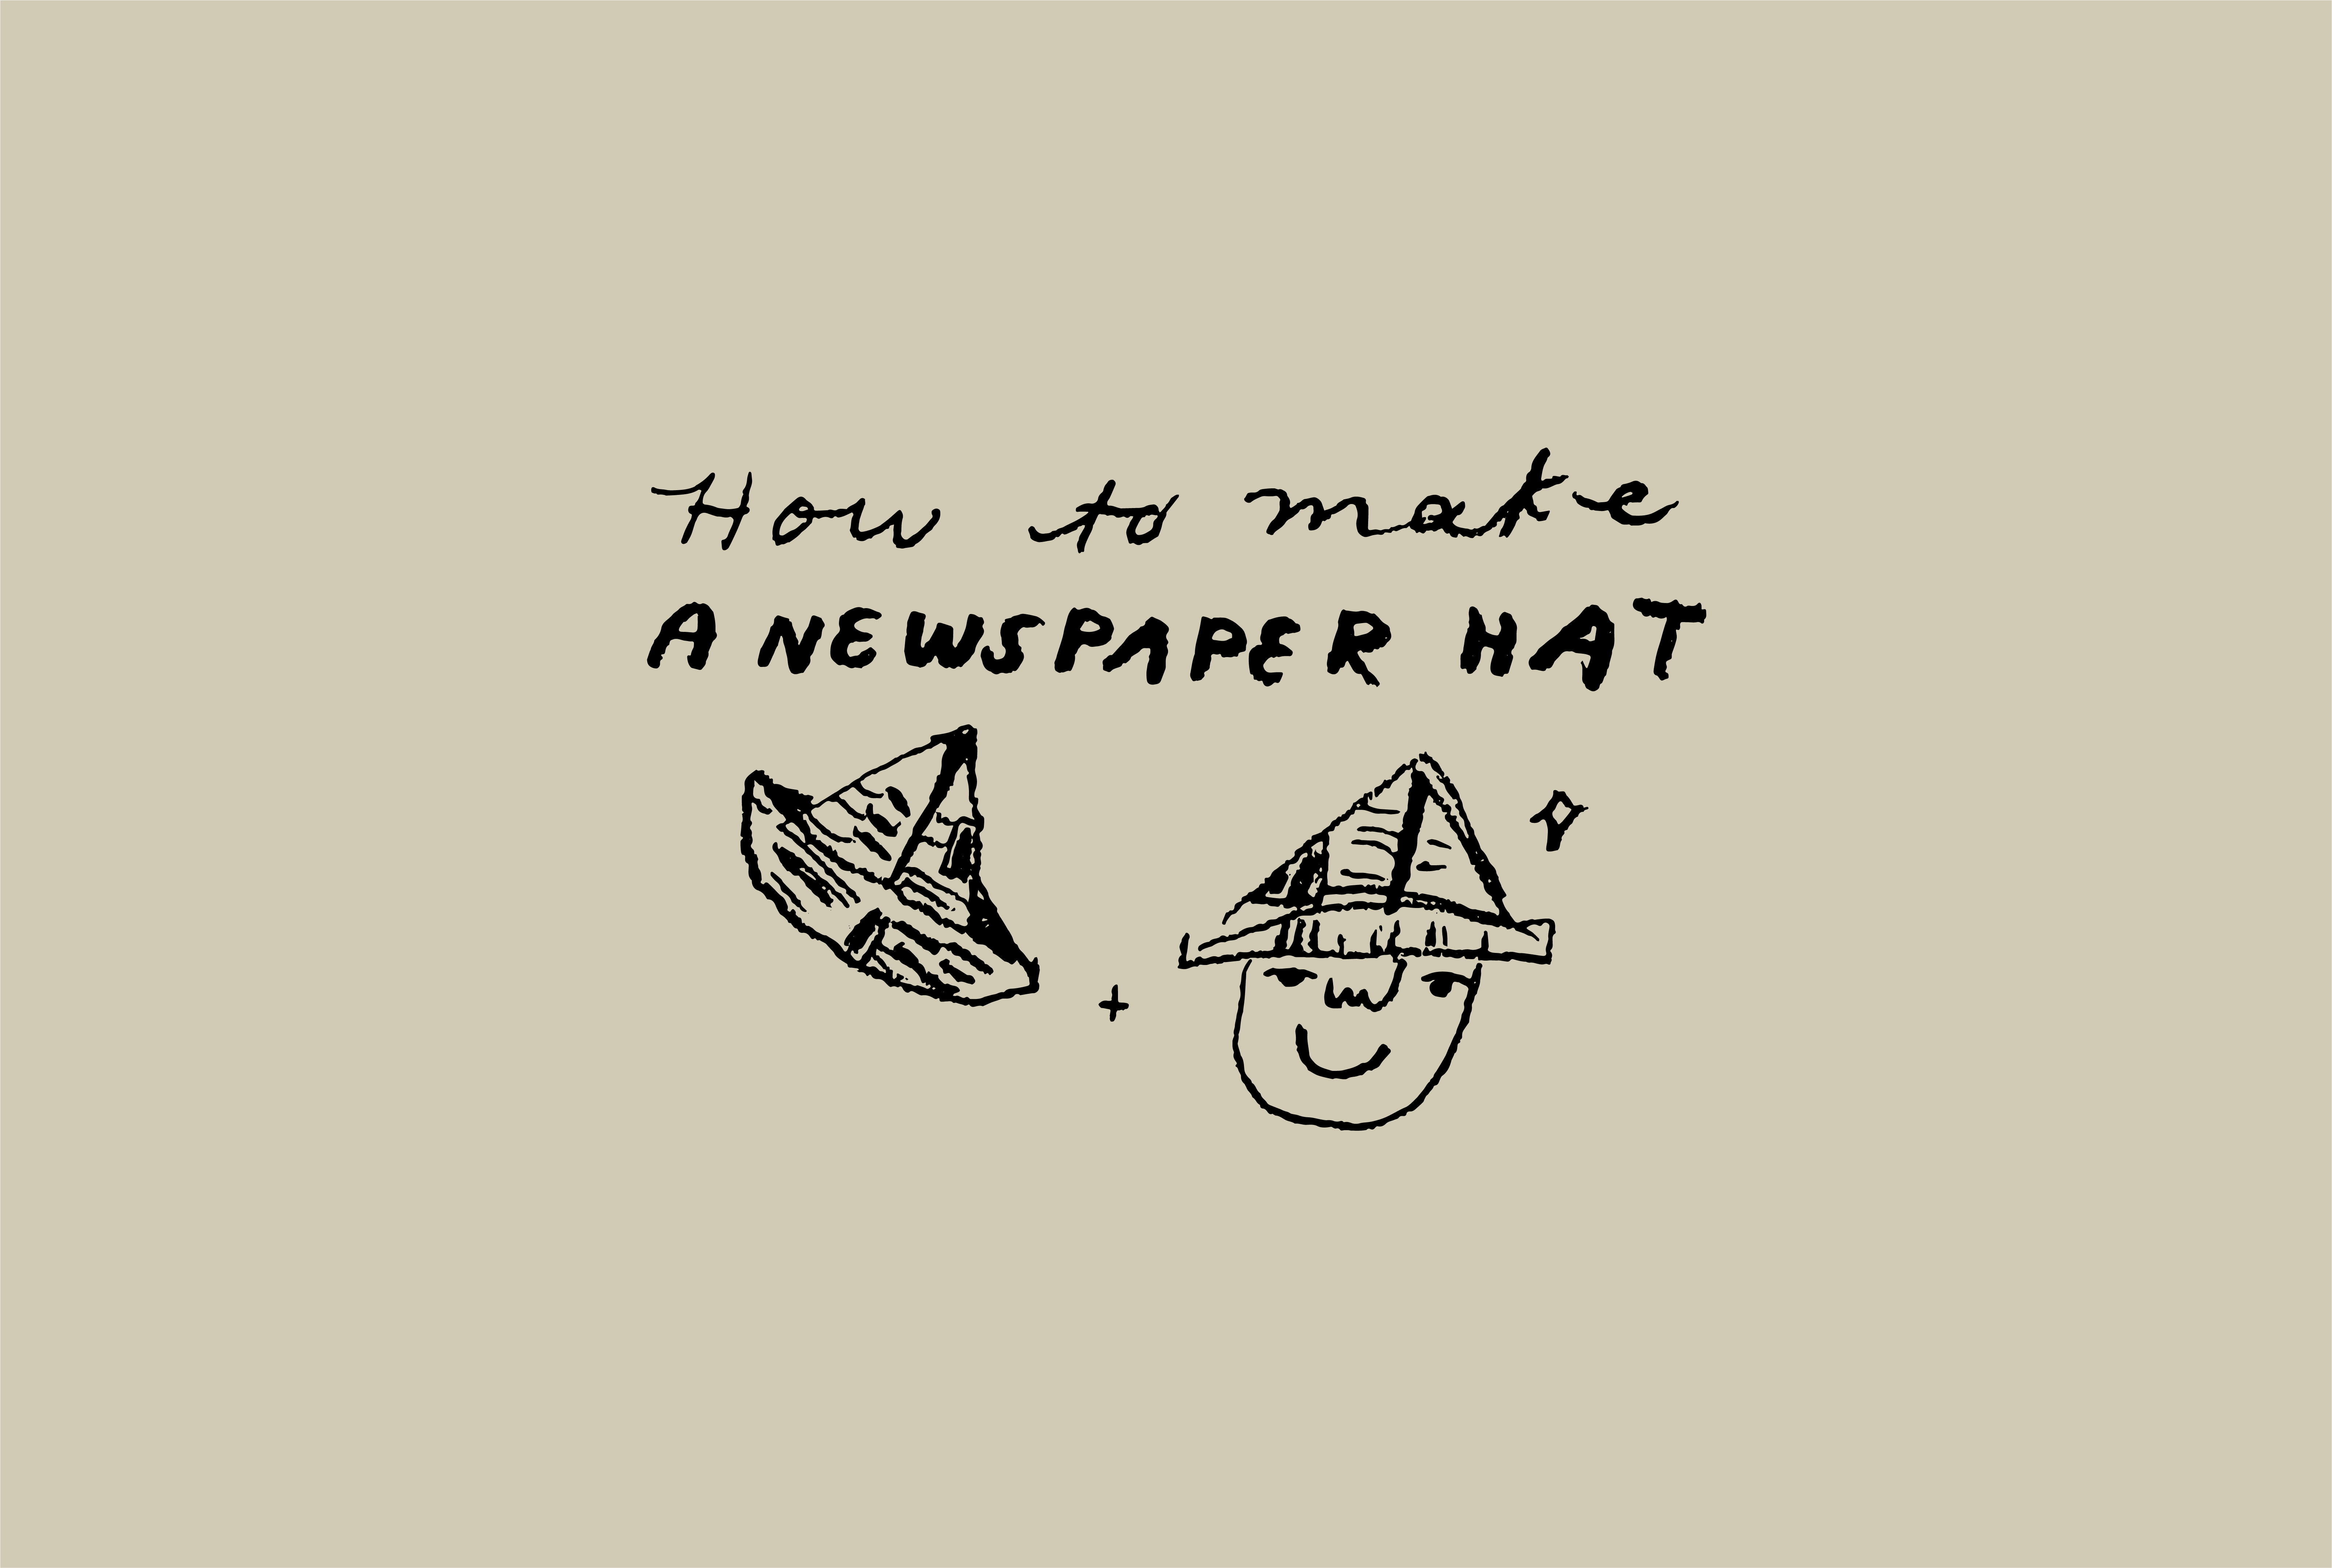 How to make
A NEWSPAPER HAT